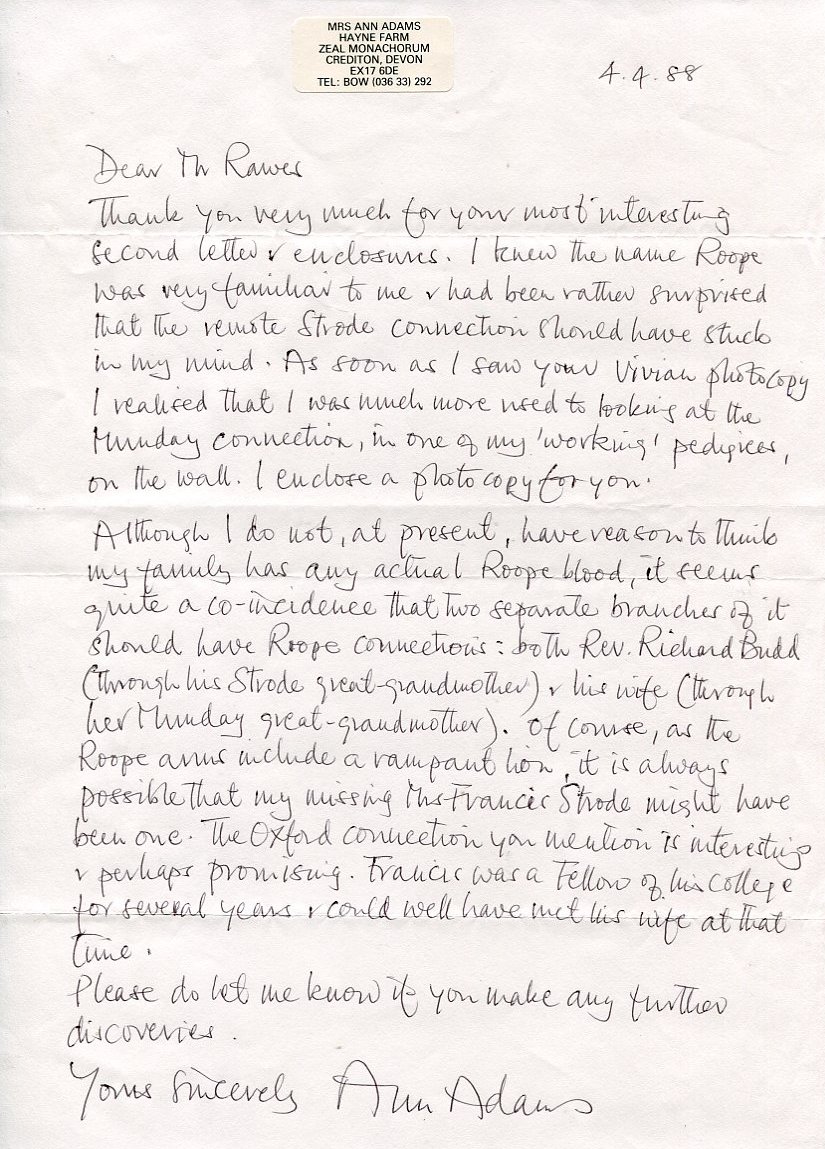 MRS ANN ADAMS
HAYNE FARM
ZEAL MONACHORUM
CREDITON, DEVON
EX17 6DE
TEL: BOW (036 33) 292
4.4.88
Dear Mr Rawes
Thank you very much for your most interesting
second letter & enclosures. I knew the name Roope
was very familiar to me & had been rather surprised
that the remote Strode connection should have stuck
in my mind. As soon as I saw your Vivian photocopy
I realised that I was much more used to looking at the
Munday connection, in one of my 'working' pedigrees,
on the wall. I enclose a photocopy for you.
Although I do not, at present, have reason to think
my family has any actual Roope blood, it seems
quite a co-incidence that two separate branches of it
should have Roope connections: both Rev. Richard Budd
(through his Strode great-grandmother) & his wife (through
her Munday great-grandmother). Of course, as the
Roope arms include a rampant lion, it is always
possible that my missing Mrs Francis Strode might have
been one. The Oxford connection you mention is interesting
& perhaps promising. Francis was a Fellow of his College
for several years & could well have met his wife at that
time.
Please do let me know if you make any further
discoveries.
Yours sincerely Ann Adams